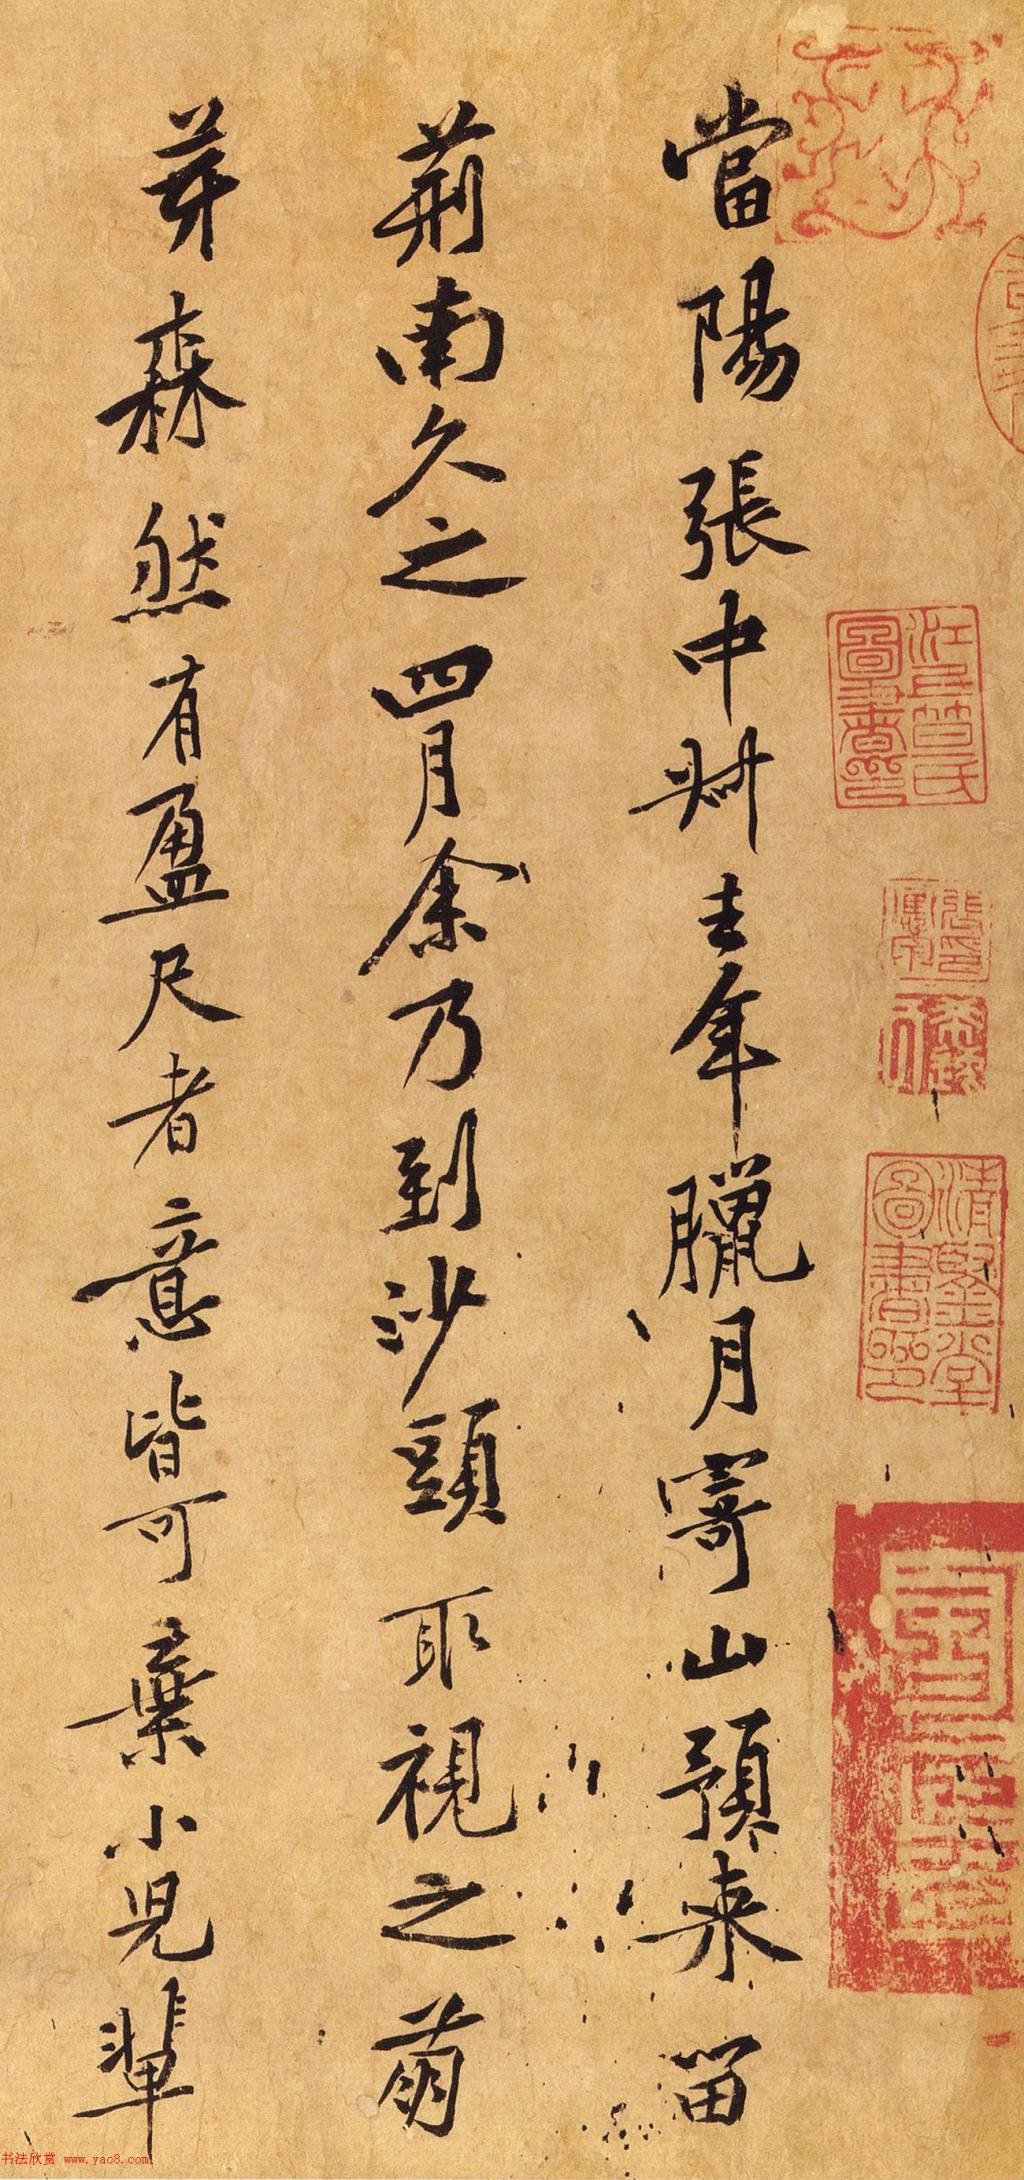 當陽張中叔去年臘月寄山預来留
荊南久之四月余乃到沙頭取視之萌
芽森然有盈尺者意皆可棄小兒輩
江上笪氏圖書印
书法欣赏 www.yac8.com